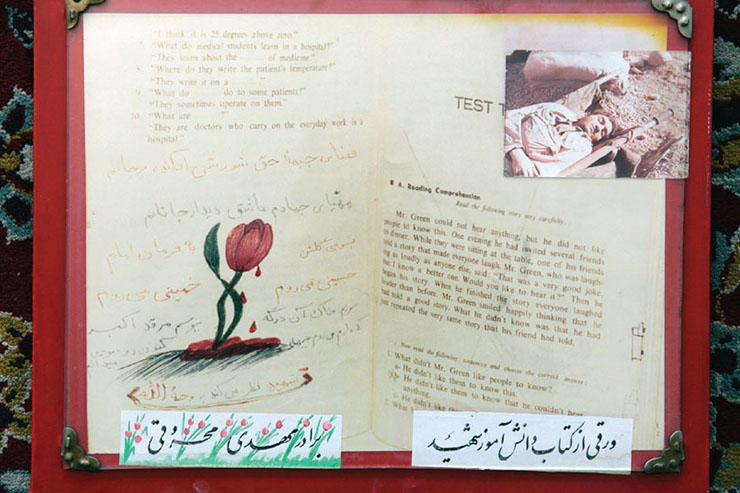 "I think it is 25 degrees above zero."
7. "What do medical students learn in a hospital?"
"They learn about the ______ of medicine."
8. "Where do they write the patient's temperature?"
"They write it on a ______."
9. "What do ______ do to some patients?"
"They sometimes operate on them."
10. "What are ______?"
"They are doctors who carry on the everyday work in a
hospital."
فضای جبههٔ حق شورشی افکنده بر جانم
مهیای جهادم عاشق دیدار جانانم
بسوی گلشن به فرمان امام
حسینی می روم خمینی می روم
خاک آن درگه ببوسم مرقد اکبر
شهید نظر می کند به وجه الله
برادر مهدی
TEST
A. Reading Comprehension
Read the following story very carefully.
Mr. Green could not hear anything, but he did not like
people to know this. One evening he had invited several friends
to dinner. While they were sitting at the table, one of his friends
told a story that made everyone laugh. Mr. Green, who was laugh-
ing as loudly as anyone else, said: "That was a very good joke,
but I know a better one. Would you like to hear it?" Then he
began his story. When he finished the story everyone laughed
louder than before. Mr. Green smiled happily thinking that he
had told a good story. What he didn't know was that he had
just repeated the very same story that his friend had told.
Now read the following sentences and choose the correct answer:
1. What didn't Mr. Green like people to know?
a- He didn't like them to know this.
b- He didn't like them to know that he couldn't hear
anything.
c- He didn't like
2. What
ورقی از کتاب دانش آموز شهید